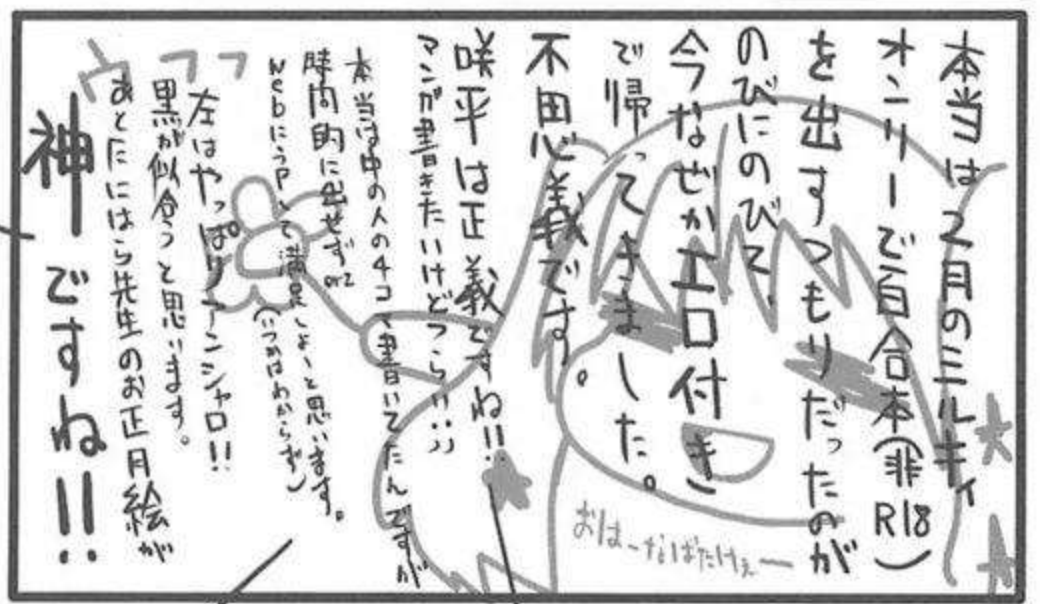 本当は2月のミルキィ
オンリーで百合本(非R18)
を出すつもりだったのが
のびにのびて、
今なぜかエロ付き
で帰ってきました。
不思議です。
咲平は正義ですね!!
マンガ書きたいけどつらい:;
本当は中の人の4コマ書いてたんですが
時間的に出せずorz
webにうpして満足しよーと思います。
(いつかはわからず)
左はやっぱりアンシャロ!!
黒が似合うと思います。
あとにはら先生のお正月絵が
神ですね!!
おはーなばたけぇー